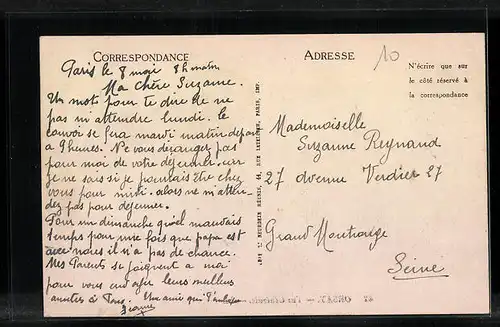 CORRESPONDANCE
Paris le 8 mai 8 h matin
Ma chère Suzanne.
Un mot pour te dire de ne
pas m'attendre lundi. le
convoi se fera mardi matin départ
à 9 heures. Ne vous dérangez pas
pour moi de votre déjeuner. car
je ne sais si je pourrais être chez
vous pour midi. alors ne m'atten-
dez pas pour déjeuner.
Pour un dimanche quel mauvais
temps pour une fois que papa est
avec nous il n'a pas de chance.
Mes Parents se joignent à moi
pour vous envoyer leurs meilleurs
amitiés à Tous. Une amie qui t'embrasse
Jeanne
ADRESSE
10
N'écrire que sur
le côté réservé à
la correspondance
Mademoiselle
Suzanne Reynaud
27 avenue Verdier 27
Grand Montrouge
Seine